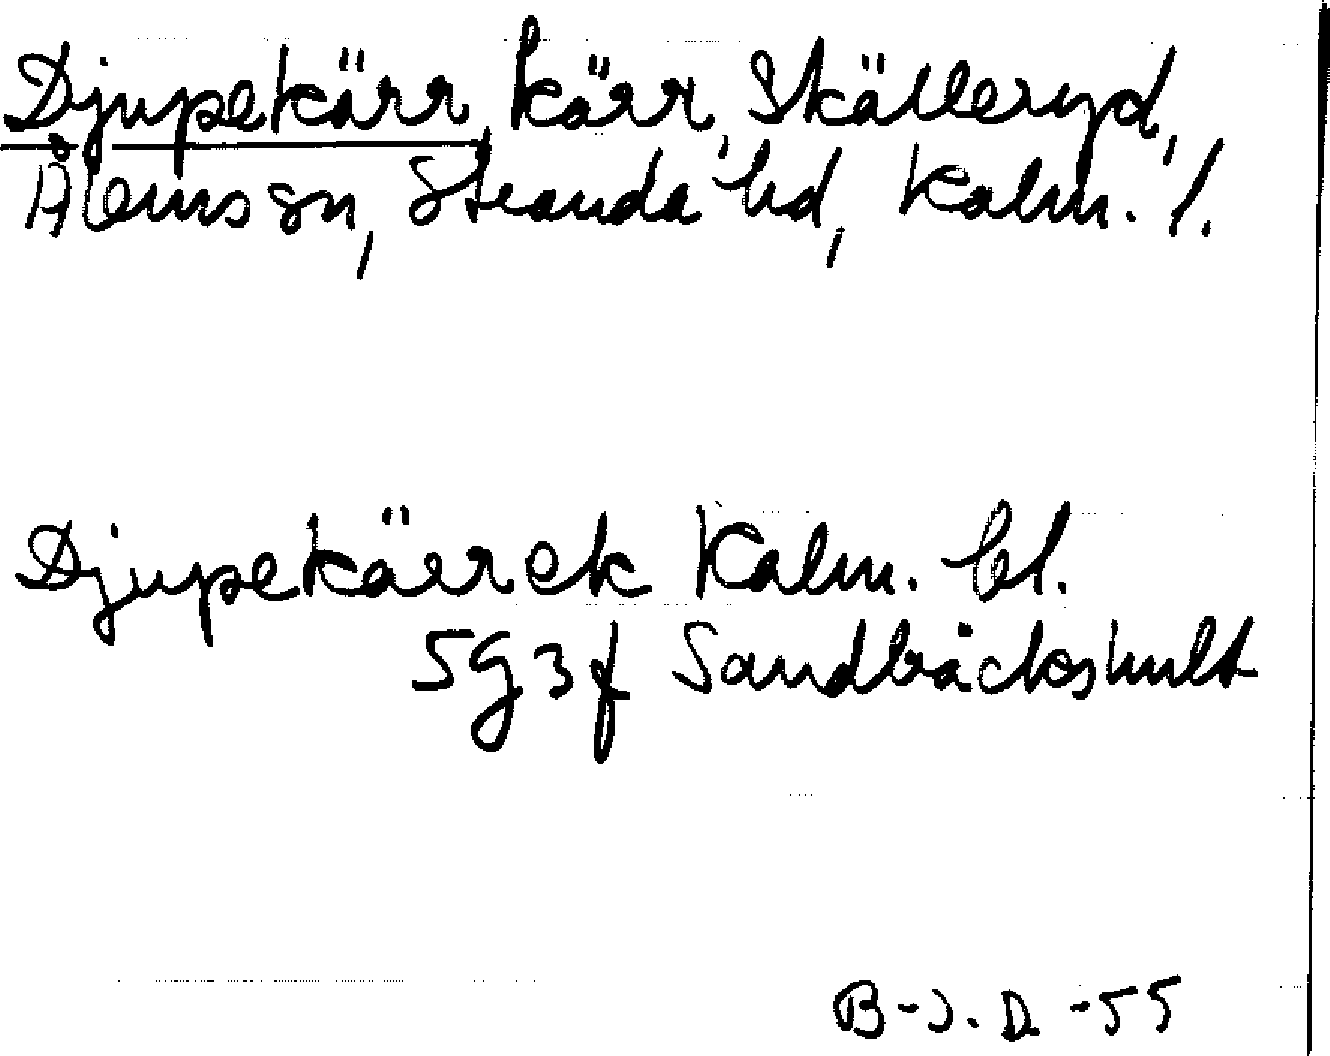 Djupekärr, kärr, Skälleryd,
Ålems sn, Stranda hd, Kalm. l.
Djupekärr ek Kalm. bl.
5G3f Sandbäckshult
B-J. D. -55